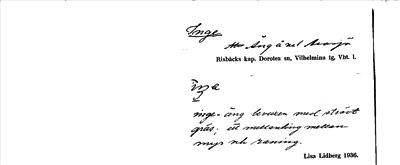 Inge
Äng
Risbäcks kap. Dorotea sn, Vilhelmina tg, Vbt. l.
inge = äng bevuxen med strävt
gräs; ett mellanting mellan
myr och raning.
Lisa Lidberg 1936.